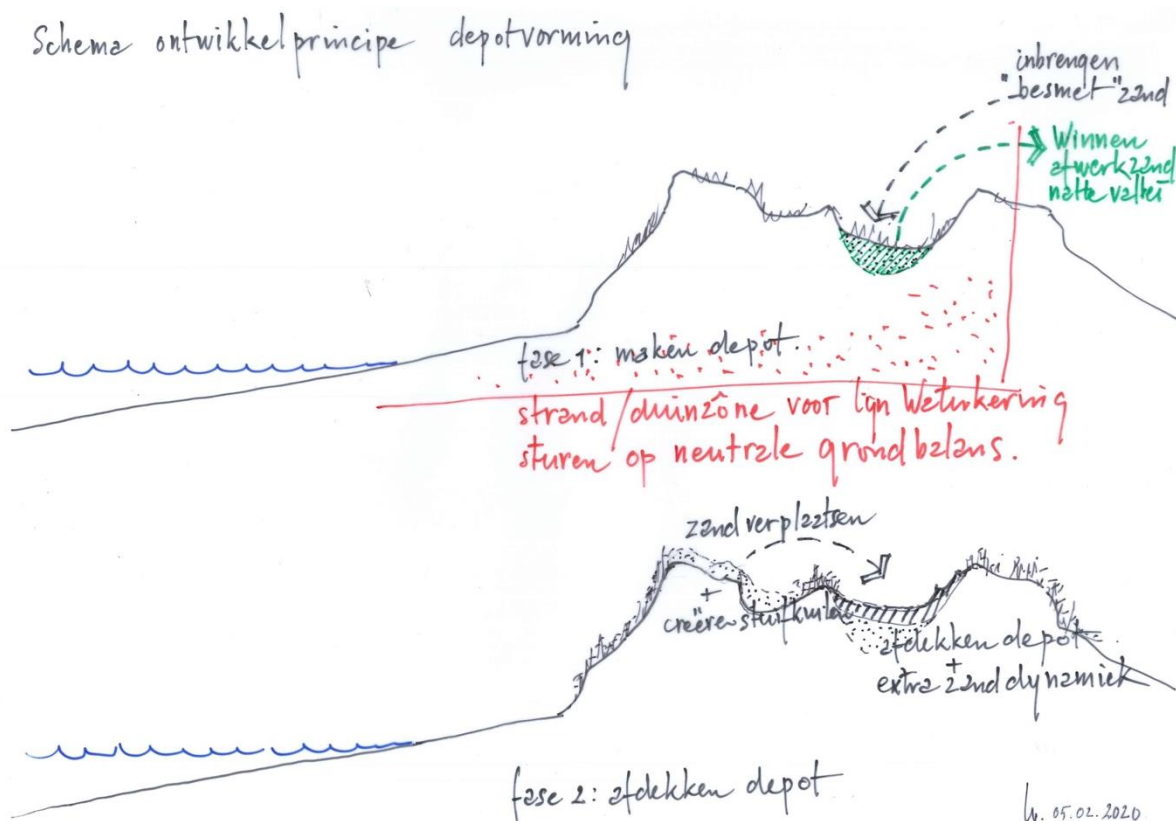 Schema ontwikkelprincipe depotvorming
inbrengen
"besmet" zand
Winnen
afwerkzand
natte vallei
fase 1: maken depot.
strand/duinzône voor lijn Waterkering
sturen op neutrale grondbalans.
zand verplaatsen
+
creëren stuifkuilen
afdekken depot
+
extra zanddynamiek
fase 2: afdekken depot
05.02.2020